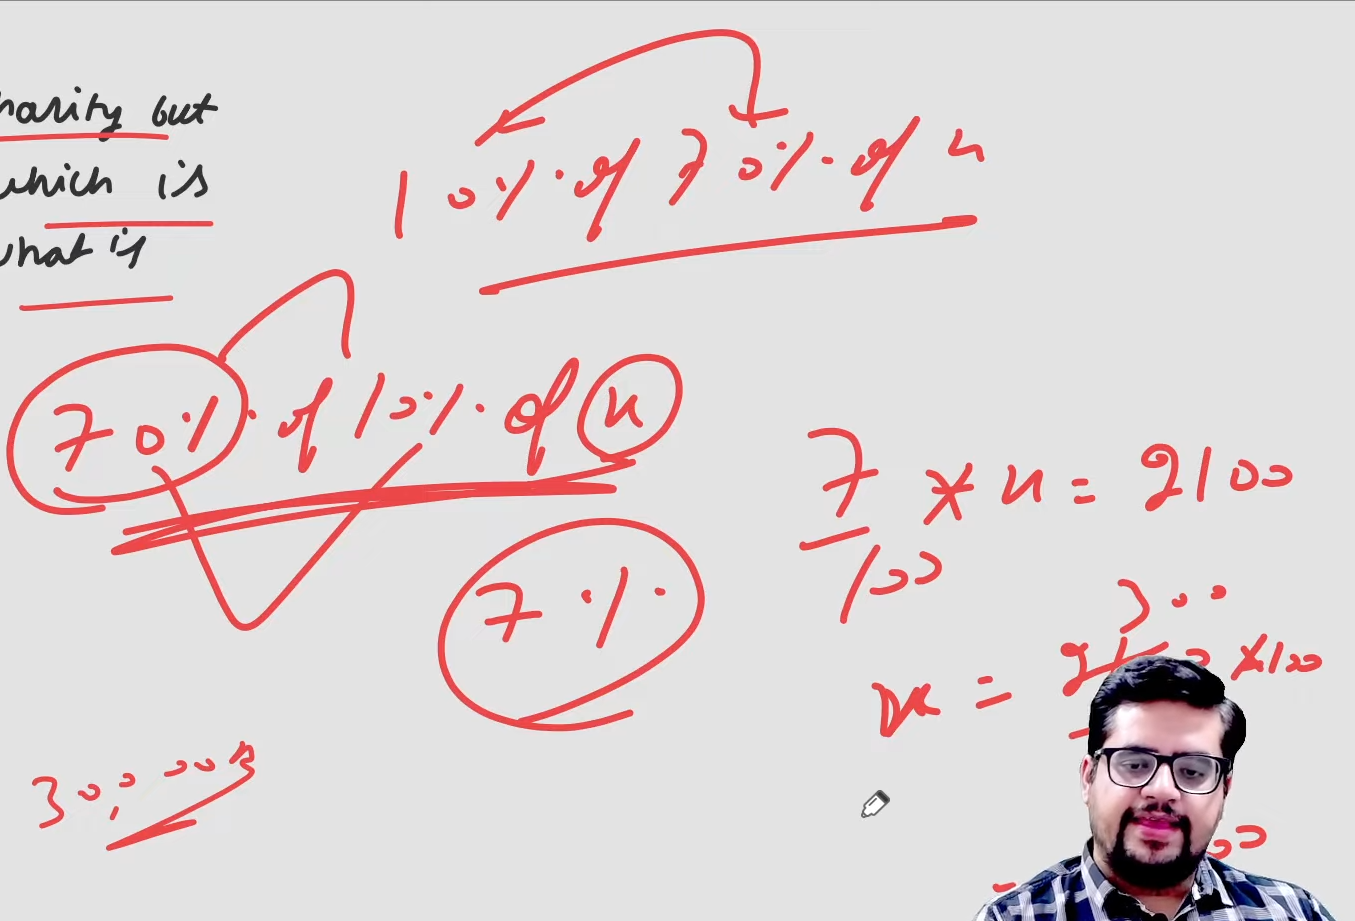 harity but
which is
what is
10% of 70% of x
70% of 10% of x
7/100 * x = 2100
7%
300
x = × 100
30,000